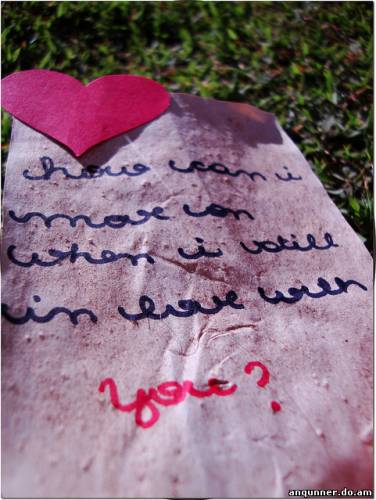 how can i
move on
when i still
in love with
you?
anqunner.do.am